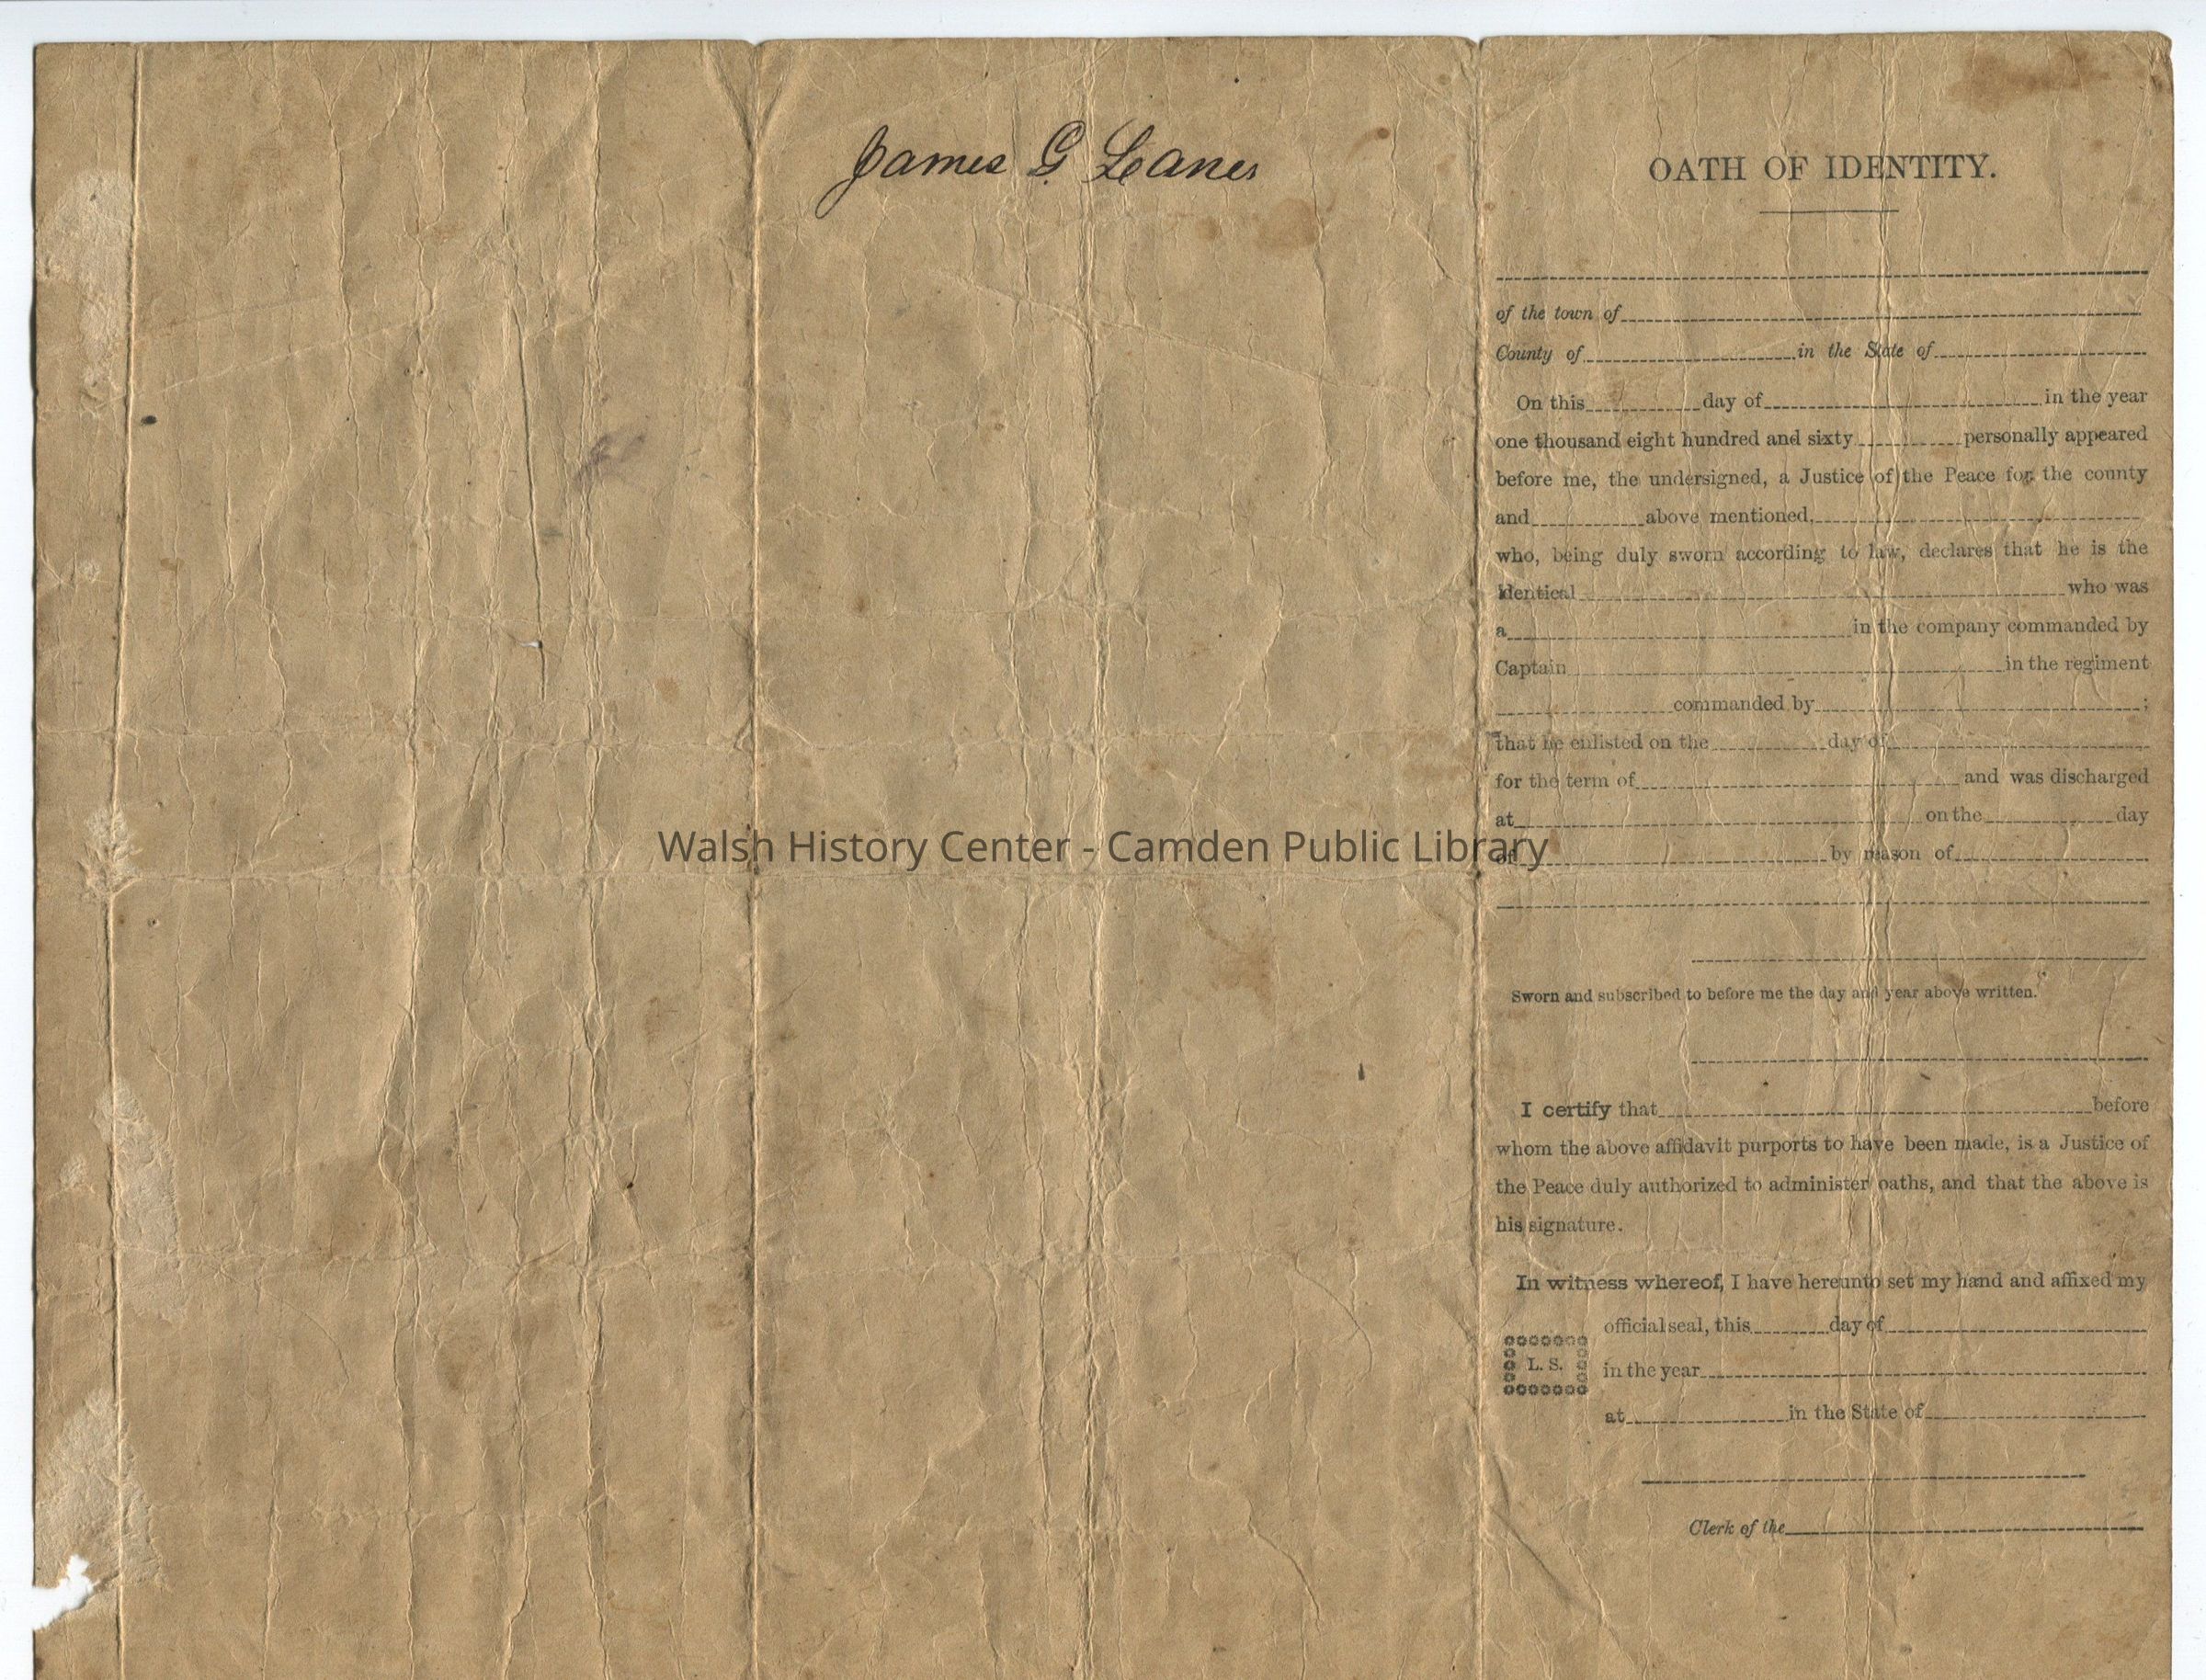 James G Leanes
OATH OF IDENTITY.
of the town of
County of in the State of
On this day of in the year
one thousand eight hundred and sixty personally appeared
before me, the undersigned, a Justice of the Peace for the county
and above mentioned,
who, being duly sworn according to law, declares that he is the
identical who was
a in the company commanded by
Captain in the regiment
commanded by ;
that he enlisted on the day of
for the term of and was discharged
at on the day
Walsh History Center - Camden Public Library
of by reason of
Sworn and subscribed to before me the day and year above written.
I certify that before
whom the above affidavit purports to have been made, is a Justice of
the Peace duly authorized to administer oaths, and that the above is
his signature.
In witness whereof, I have hereunto set my hand and affixed my
official seal, this day of
L. S.
in the year
at in the State of
Clerk of the